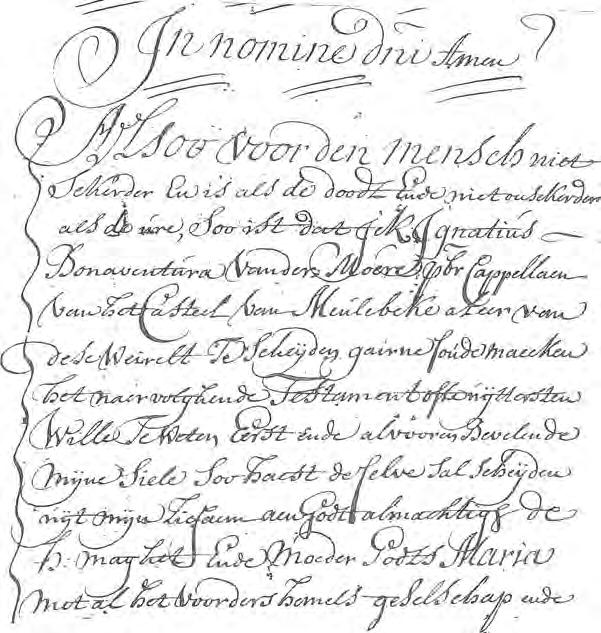 In nomine dni Amen
Alsoo voor den mensch niet
sekerder En is als de doodt Ende niet onsekerder
als de ure, Soo ist dat Jck Jgnatius
Bonaventura Vander Moere pbr Cappellaen
van het Casteel van Meulebeke aleer van
dese Weirelt Te Scheyden gairne soude maecken
het naervolghende Testament ofte uyttersten
Wille Te Weten Eerst ende alvooren Bevelende
mijne Siele Soo haest de selve sal scheyden
uyt mijn Lichaem aen Godt almachtigh de
h: maghet Ende Moeder Godts Maria
met al het voorders hemels geselschap ende